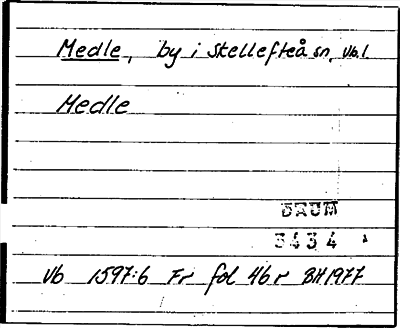 Medle, by i Skellefteå sn, Vb.l.
Medle
DAUM
3434
Vb 1597:6 Fr fol 46r BH 1977